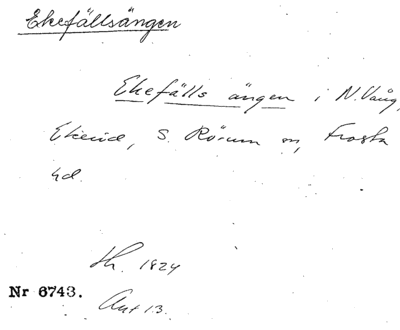 Ekefällsängen
Ekefälls ängen i N. Vång,
Ekeröd, S. Rörum sn, Frosta
hd
1824
Nr 6743.
Akt 13.